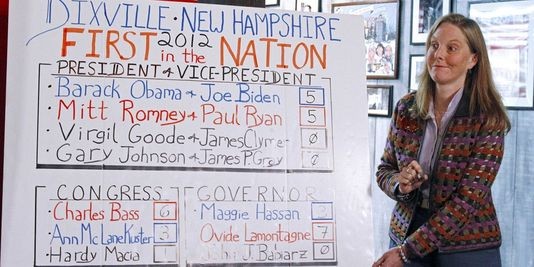 DIXVILLE · NEW HAMPSHIRE
FIRST 2012 in the NATION
PRESIDENT & VICE-PRESIDENT
· Barack Obama & Joe Biden 5
· Mitt Romney & Paul Ryan 5
· Virgil Goode & James Clymer 0
· Gary Johnson & James P. Gray 0
CONGRESS
· Charles Bass 6
· Ann McLane Kuster 3
· Hardy Macia 1
GOVERNOR
· Maggie Hassan 3
· Ovide Lamontagne 7
· John J. Babiarz 0